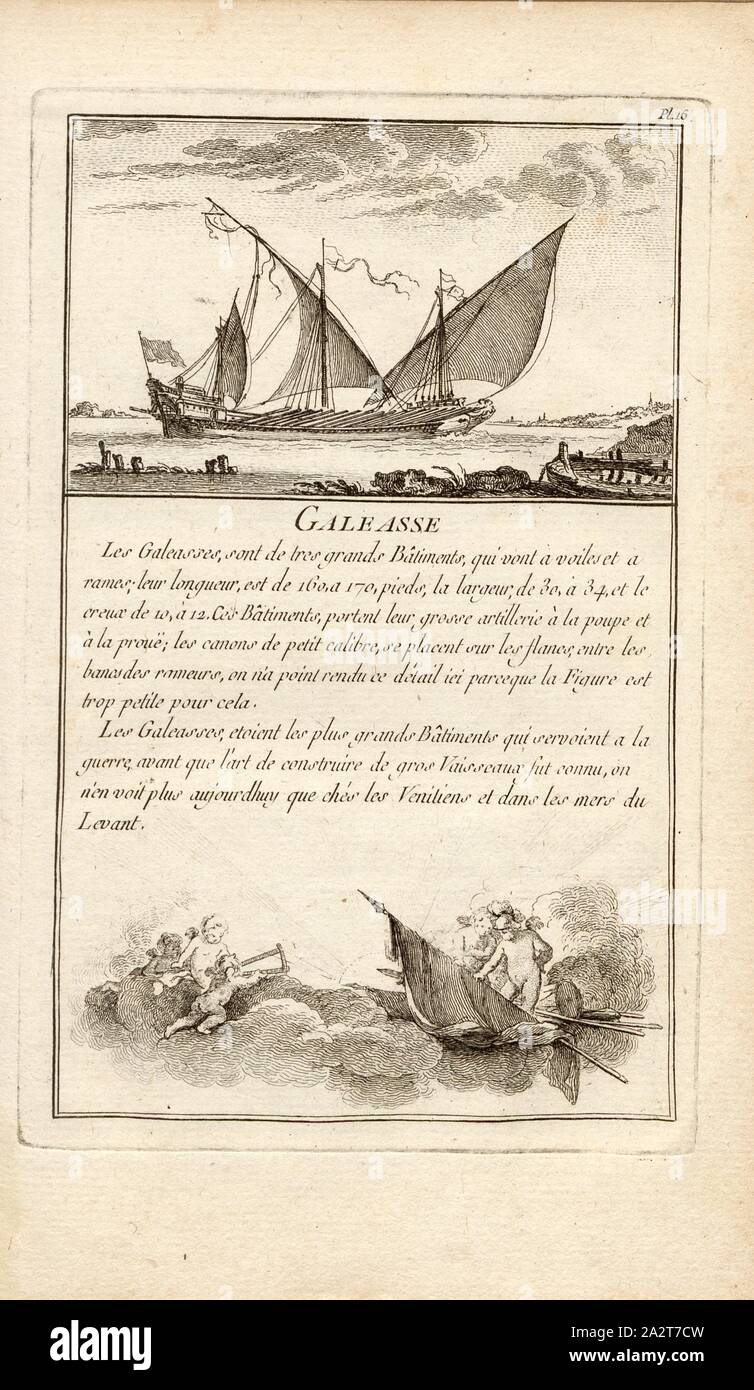 Pl. 16
GALEASSE
Les Galeasses, sont de tres grands Bâtiments, qui vont à voiles et a
rames; leur longueur, est de 160, a 170, pieds, la largeur, de 30, à 34, et le
creux de 10, à 12. Ces Bâtiments, portent leur grosse artillerie à la poupe et
à la prouë; les canons de petit calibre, se placent sur les flancs, entre les
bancs des rameurs, on n'a point rendu ce détail ici parceque la Figure est
trop petite pour cela.
Les Galeasses, etoient les plus grands Bâtiments qui servoient a la
guerre, avant que l'art de construire de gros Vaisseaux fut connu, on
n'en voit plus aujourdhuy que chés les Venitiens et dans les mers du
Levant.
alamy
Image ID: 2A2T7CW
www.alamy.com